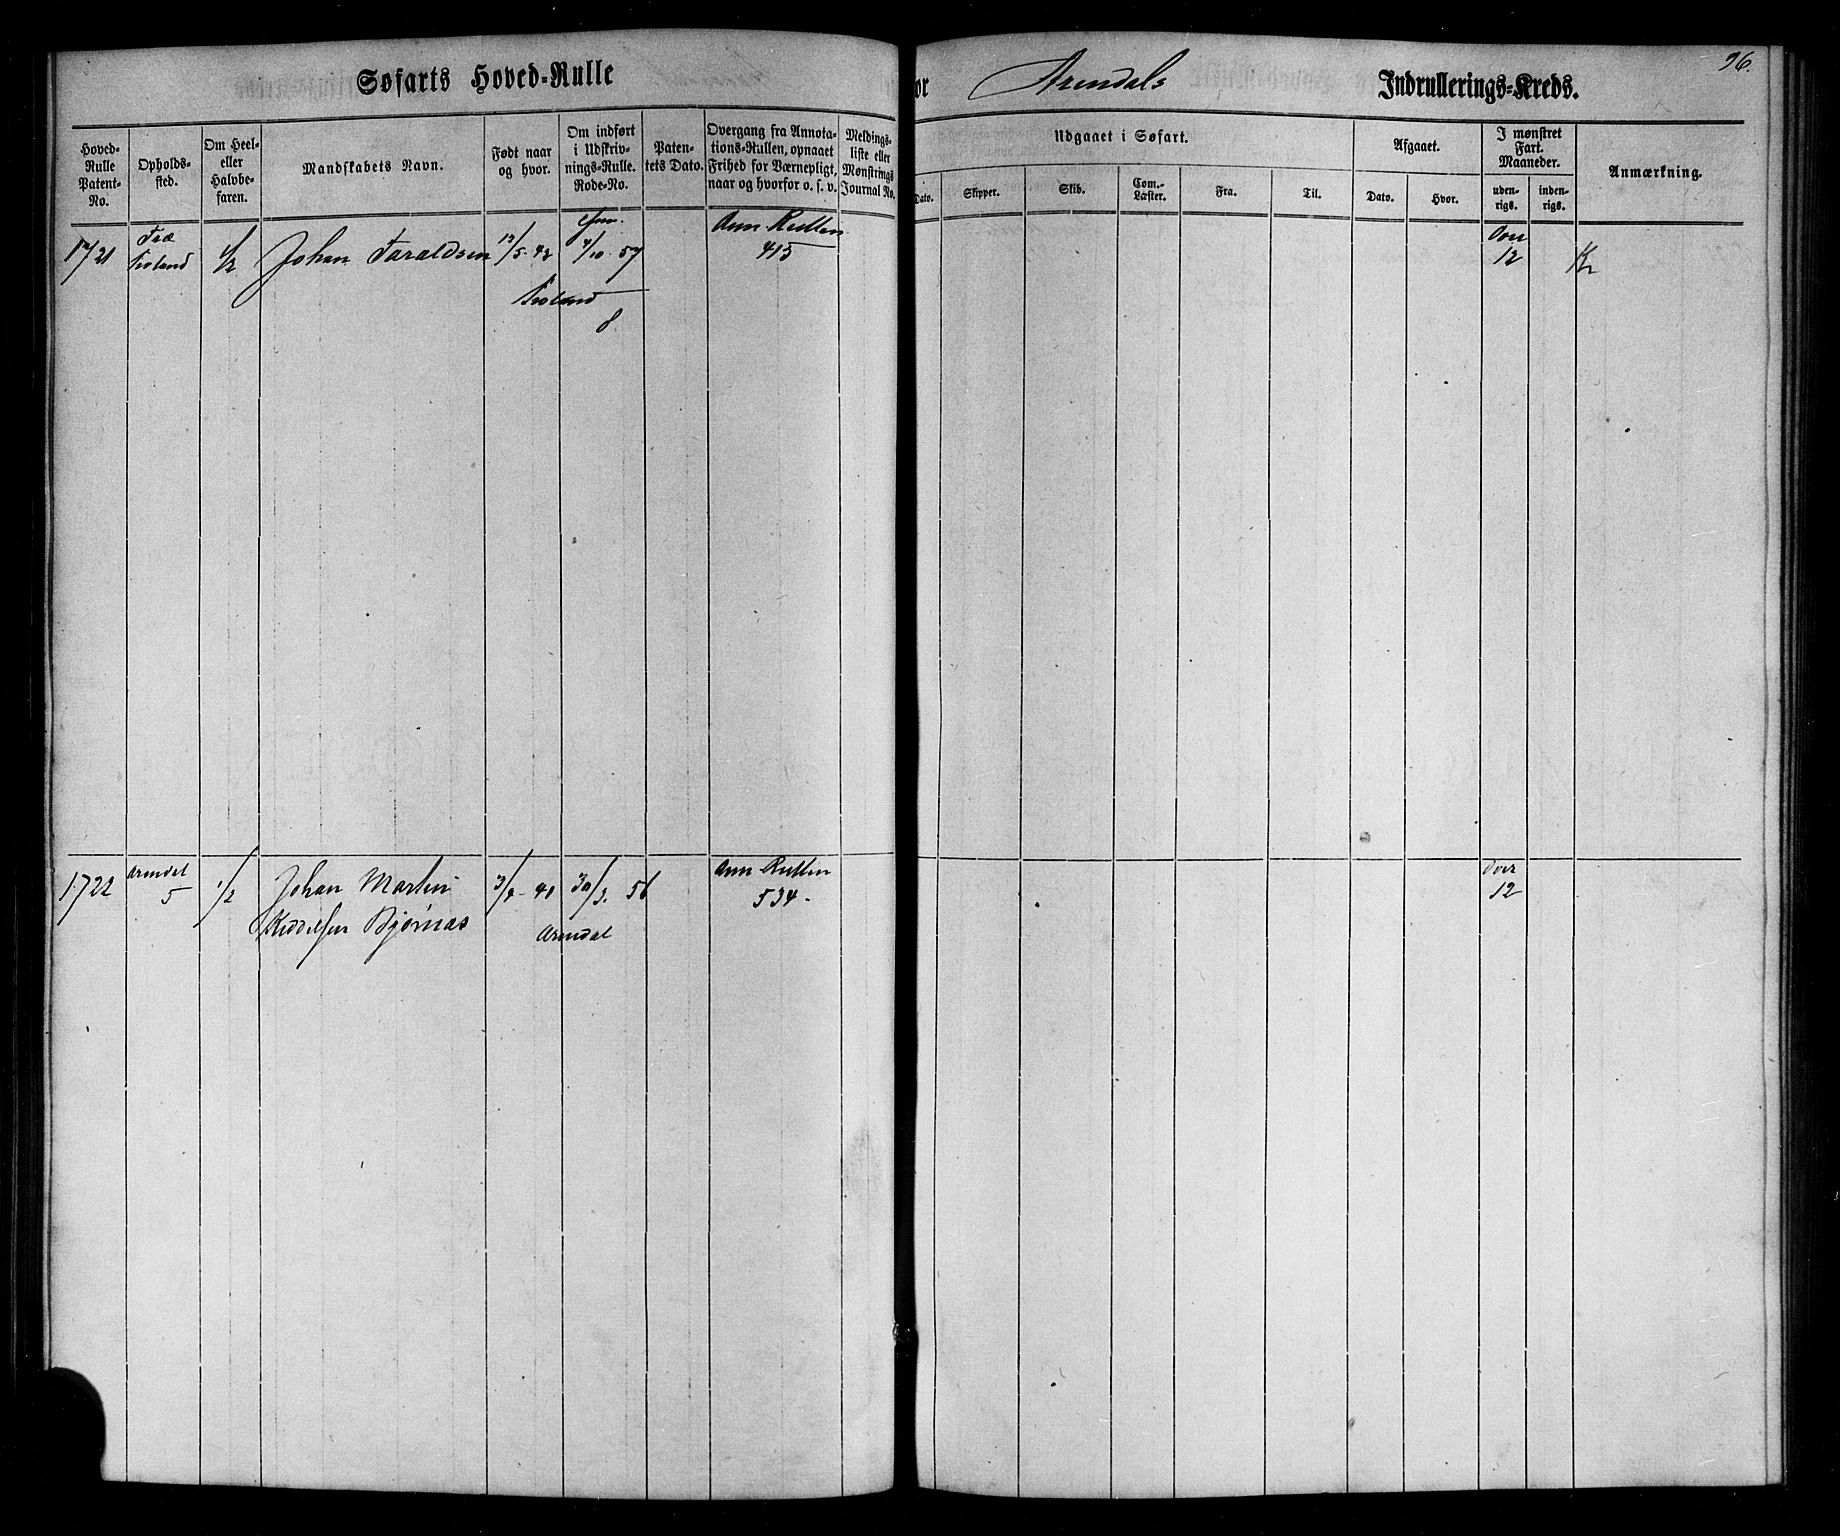 Søfarts Hoved-Rulle for Arendals Indrullerings-Kreds.
96.
Hoved-Rulle Patent-No.
Opholds-sted.
Om Heel- eller Halvbe-faren.
Mandskabets Navn.
Født naar og hvor.
Om indført i Udskriv-nings-Rulle. Rode-No.
Paten-tets Dato.
Overgang fra Annota-tions-Rullen, opnaaet Frihed for Værnepligt, naar og hvorfor o. s. v.
Meldings-liste eller Mønstrings Journal No.
Udgaaet i Søfart.
Dato.
Skipper.
Skib.
Com.-Læster.
Fra.
Til.
Afgaaet.
Dato.
Hvor.
I mønstret Fart. Maaneder.
uden-rigs.
inden-rigs.
Anmærkning.
1721 Froland 1/2 Johan Taraldsen 12/5 42 4/10 57 Ann Rullen 415 Over 12
Froland
8
1722 Arendal 5 1/2 Johan Martin 3/4 40 30/3 56 Ann Rullen 534 Over 12
Kiddelsen Bjørnaas Arendal